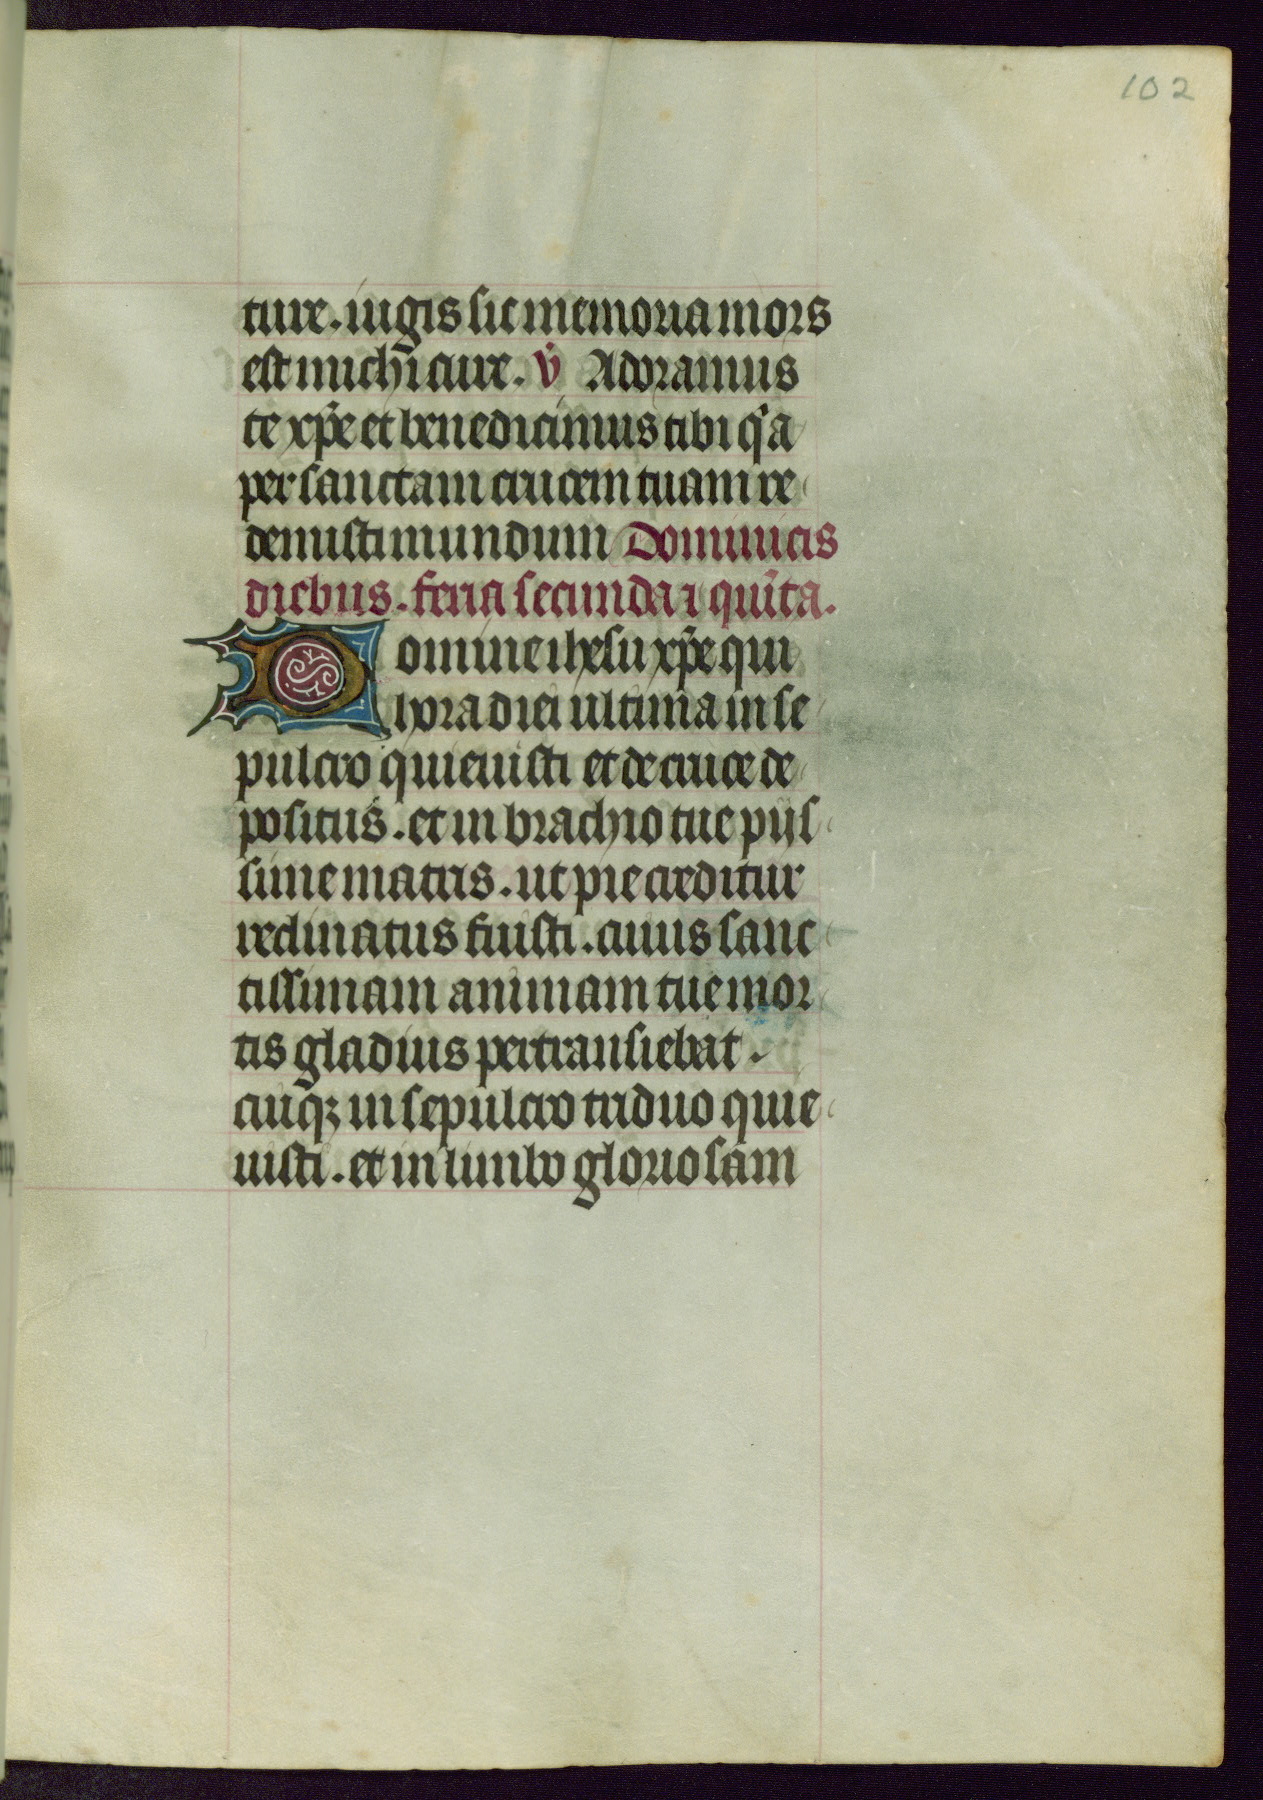 102
ture. iugis sic memoria mors
est michi cure. v̇ Adoramus
te xp̄e et benedicimus tibi qͥa
per sanctam crucem tuam re
demisti mundum Dominicis
diebus. feria secunda ⁊ quīta.
Domine ihesu xp̄e qui
hora diei ultima in se
pulcro quieuisti et de cruce de
positus. et in brachio tue pijs
sime matris. ut pie creditur
reclinatus fuisti. cuius sanc
tissimam animam tue mor
tis gladius pertransiebat.
cuiqꝫ in sepulcro triduo quie
uisti. et in limbo gloriosam